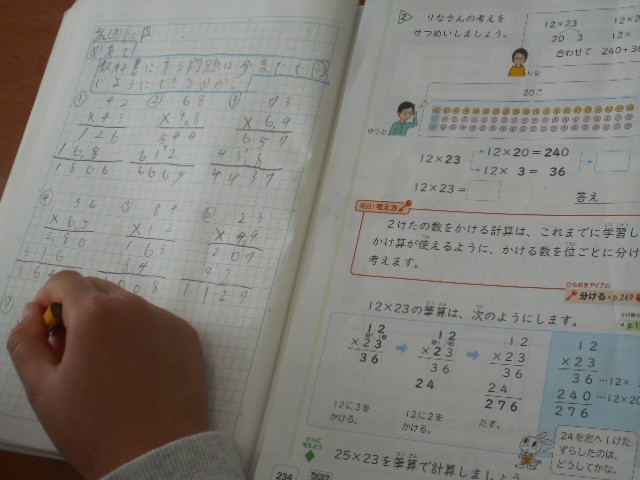 めあて
教科書にある問題は今までと同
じようにできるのか。
① 42
×43
126
168
1806
② 68
×98
544
612
6664
③ 73
×69
657
438
4437
④ 56
×65
280
⑤ 84
×12
168
84
⑥ 23
×49
207
92
1127
② りなさんの考えを
せつめいしましょう。
12×23
20 3
12×
合わせて 240+36
りな
20こ
ゆうと
12×23
12×20=240
12× 3= 36
12×23=
答え
発見! 考え方
2けたの数をかける計算は、これまでに学習し
かけ算が使えるように、かける数を位ごとに分け
考えます。
ひらめきアイテム
分ける p.269
12×23の筆算は、次のようにします。
12
×23
36
12に3を
かける。
12
×23
36
24
12に2を
かける。
12
×23
36
24
276
たす。
12
×23
36 …12×
240 …12×20
276
24を左へ1けた
ずらしたのは、
どうしてかな。
25×23を筆算で計算しましょう
234